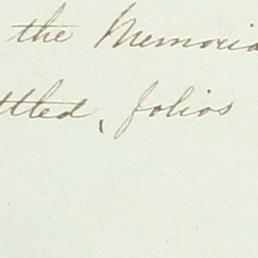 the Memoria
ttled, folios